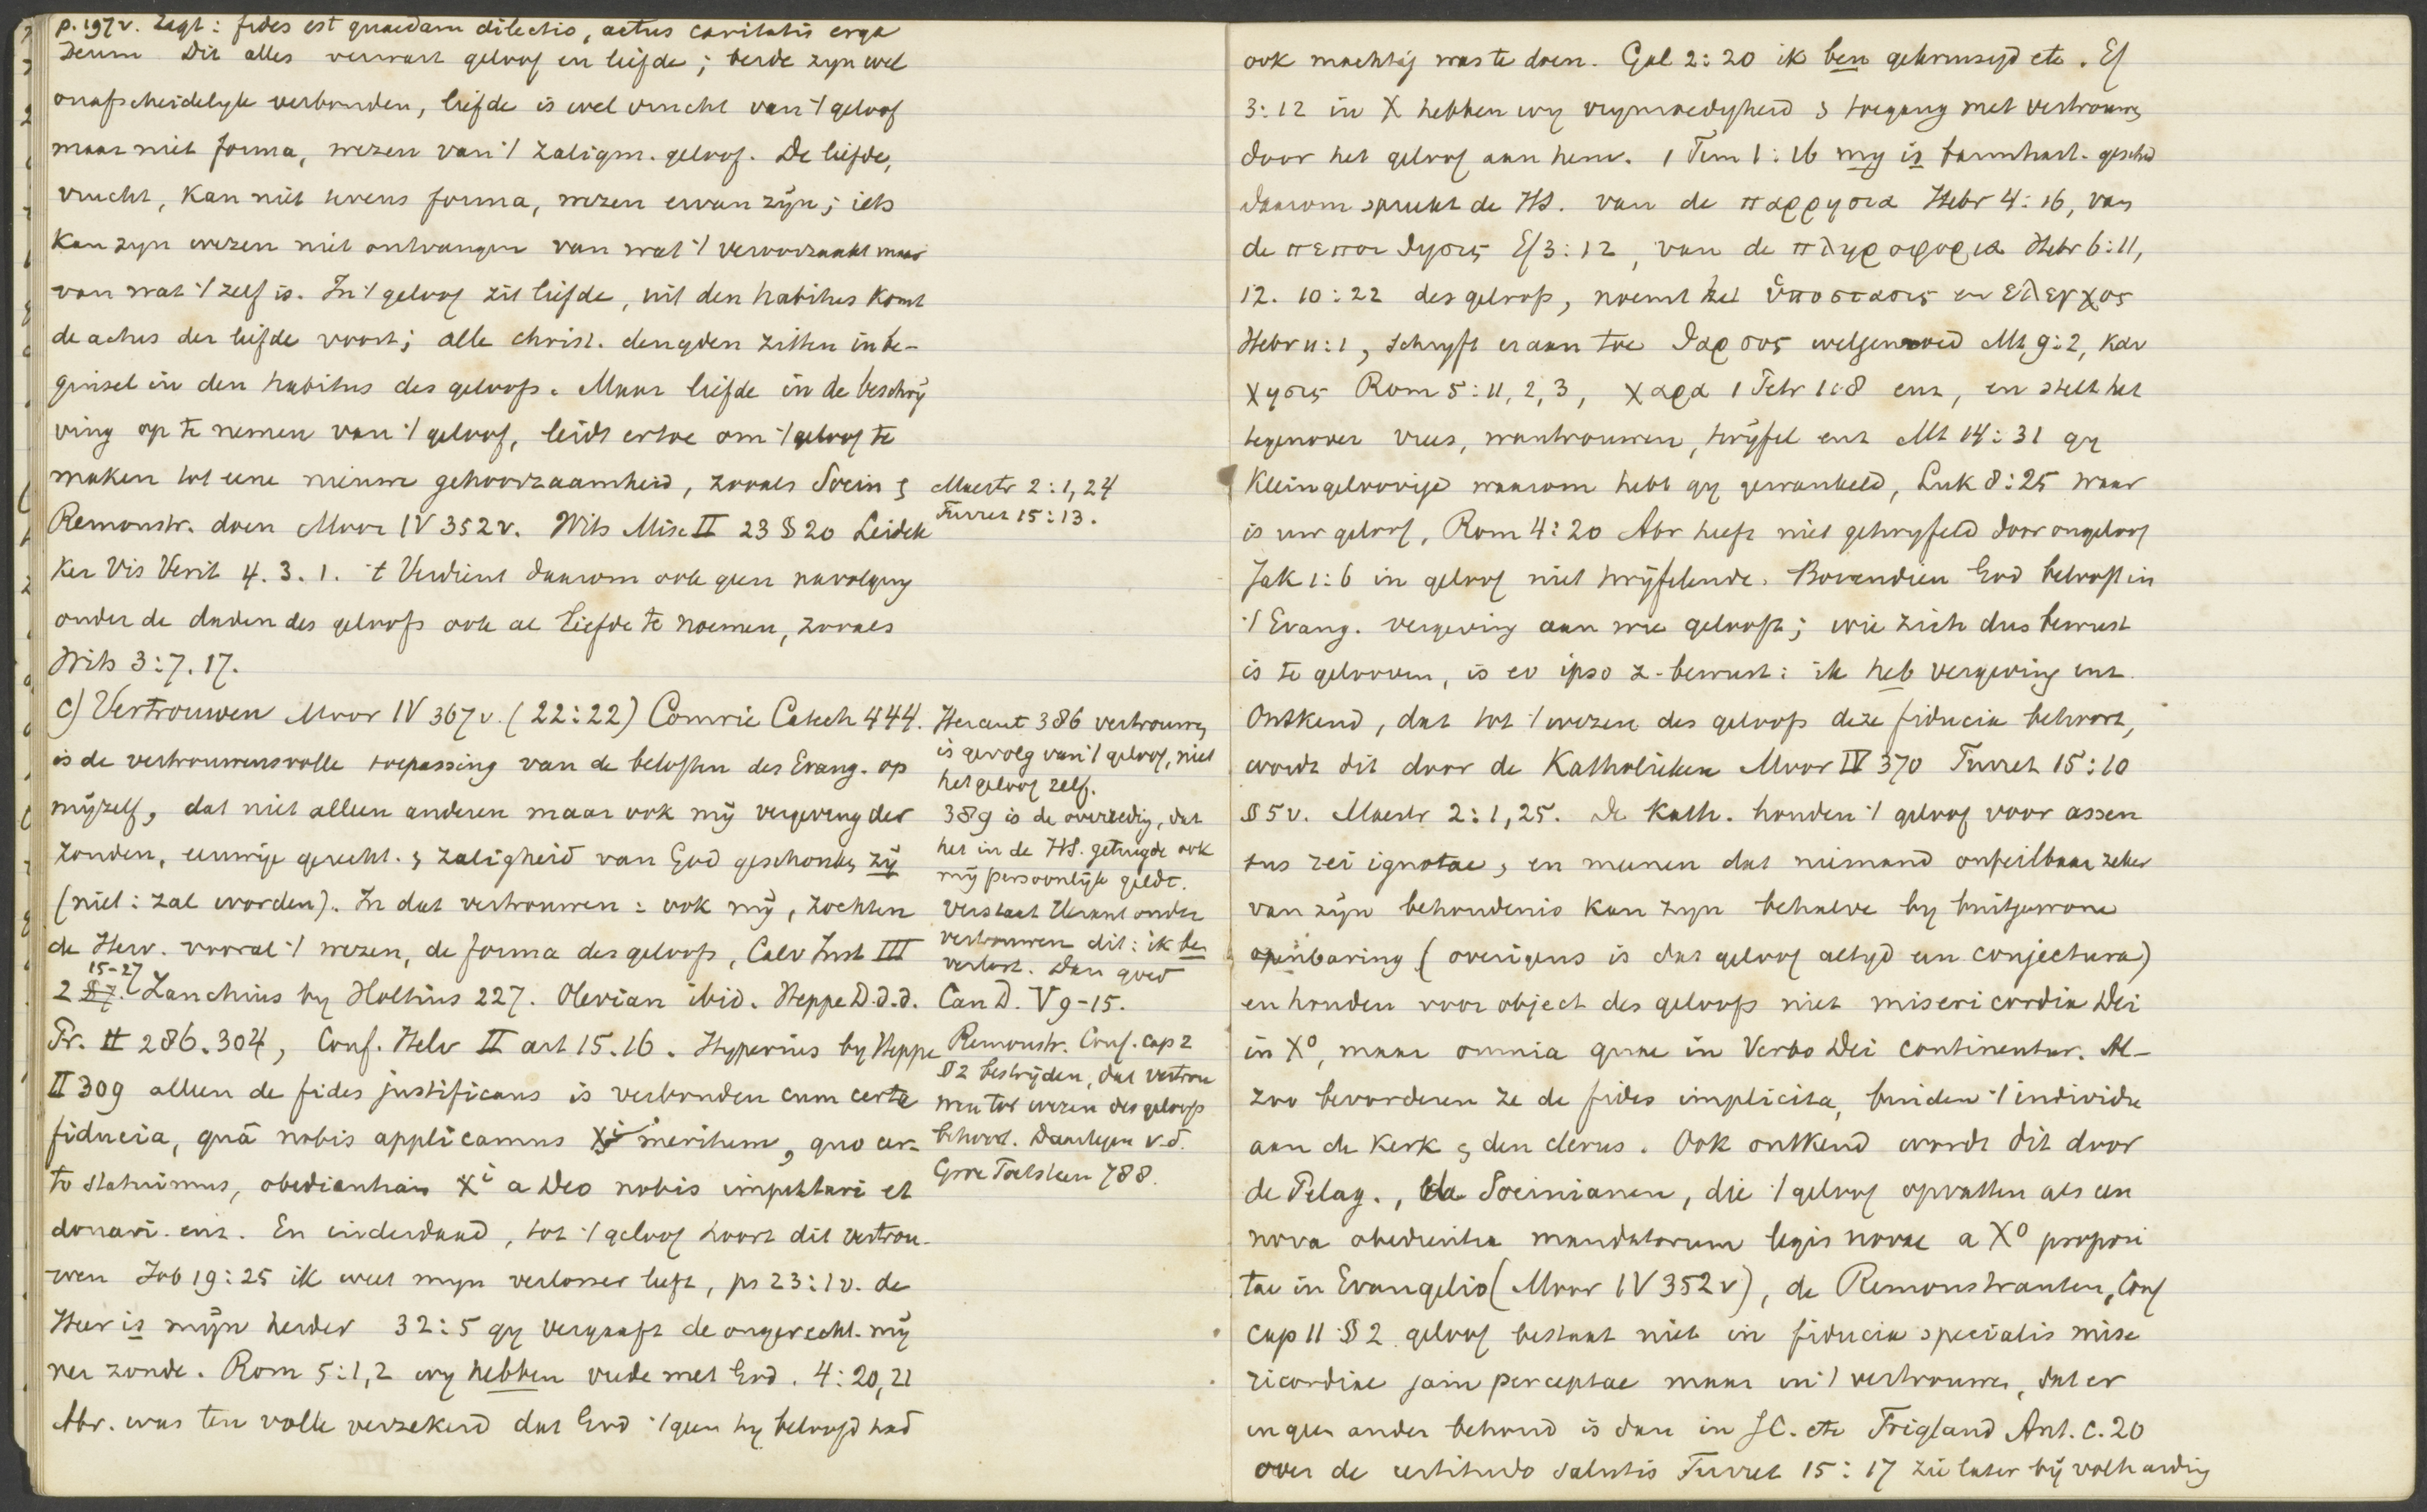 p. 197v. zegt: fides est quaedam dilectio, actus caritatis erga
Deum Dit alles verwart geloof en liefde; beide zyn wel
onafscheidelyk verbonden, liefde is wel vrucht van 't geloof
maar niet forma, wezen van 't zaligm. geloof. De liefde,
vrucht, kan niet tevens forma, wezen ervan zijn; iets
kan zyn wezen niet ontvangen van wat 't veroorzaakt maar
van wat 't zelf is. In 't geloof zit liefde, uit den habitus komt
de actus der liefde voort; alle christ. deugden zitten in be-
ginsel in den habitus des geloofs. Maar liefde in de beschrij
ving op te nemen van 't geloof, leidt ertoe om 't geloof te
maken tot eene nieuwe gehoorzaamheid, zooals Socin &
Remonstr. doen Moor IV 352v. Wits Misc II 23 § 20 Leidek
ker Vis Verit 4. 3. 1. 't Verdient daarom ook geen navolging
onder de daden des geloofs ook al liefde te noemen, zooals
Wits 3:7. 17.
c) Vertrouwen Moor IV 367v. (22:22) Comrie Catech 444.
is de vertrouwensvolle toepassing van de beloften des Evang. op
mijzelf, dat niet alleen anderen maar ook mij vergeving der
zonden, eeuwige gerecht. & zaligheid van God geschonken zij
(niet: zal worden). In dat vertrouwen: ook mij, zochten
de Herv. vooral 't wezen, de forma des geloofs, Calv Inst III
15-27
2 §7. Zanchius by Holtius 227. Olevian ibid. Heppe D.d.d.
Pr. II 286. 304, Conf. Helv II art 15. 16. Hyperius by Heppe
II 309 alleen de fides justificans is verbonden cum certa
fiducia, quâ nobis applicamus Xi meritum, quo cer-
to statuimus, obedientiam Xi a Deo nobis imputari et
donari enz. En inderdaad, tot 't geloof hoort dit vertrou-
wen Job 19:25 ik weet myn verlosser leeft, ps 23:1v. de
Heer is mijn herder 32:5 gy vergaaft de ongerecht. mij
ner zonde. Rom 5:1,2 wy hebben vrede met God. 4:20,21
Abr. was ten volle verzekerd dat God 't geen hy beloofd had
Maestr 2:1,24
Turret 15:13.
Heraut 386 vertrouwen
is gevolg van 't geloof, niet
het geloof zelf.
389 is de overredig, dat
het in de HS. getuigde ook
mij persoonlijk geldt.
Verstaat Heraut onder
vertrouwen dit: ik ben
verlost. Dan goed
Can D. V 9-15.
Remonstr. Conf. cap 2
§ 2 bestrijden, dat vertrou
wen tot wezen des geloofs
behoort. Daartegen v.d.
Groe Toetsteen 788.
ook machtig was te doen. Gal 2:20 ik ben gekruisigd etc. Ef
3:12 in X hebben wy vrymoedigheid & toegang met vertrouwen
door het geloof aan hem. 1 Tim 1:16 my is barmhart. geschied
daarom spreekt de HS. van de παρρησια Hebr 4:16, van
de πεποιθησις Ef 3:12, van de πληροφορια Hebr 6:11,
12. 10:22 des geloofs, noemt het ὑποστασις en ελεγχος
Hebr 11:1, schryft eraan toe θαρσος welgemoed Mt 9:2, καυ
χησις Rom 5:11, 2, 3, χαρα 1 Petr 1:8 enz, en stelt het
tegenover vrees, wantrouwen, twijfel enz Mt 14:31 gy
kleingeloovige waarom hebt gy gewankeld, Luk 8:25 waar
is uw geloof, Rom 4:20 Abr heeft niet getwyfeld door ongeloof
Jak 1:6 in geloof niet twijfelende. Bovendien God belooft in
't Evang. vergeving aan wie gelooft; wie zich dus bewust
is te gelooven, is eo ipso z. bewust: ik heb vergeving enz.
Ontkend, dat tot 't wezen des geloofs deze fiducia behoort,
wordt dit door de Katholieken Moor IV 370 Turret 15:10
§ 5v. Maestr 2:1,25. De Kath. houden 't geloof voor assen
sus rei ignotae, en meenen dat niemand onfeilbaar zeker
van zijn behoudenis kan zyn behalve by buitgewone
openbaring (overigens is dat geloof altyd een conjectura)
en houden voor object des geloofs niet misericordia Dei
in Xo, maar omnia quae in Verbo Dei continentur. Al-
zoo bevorderen ze de fides implicita, binden 't individu
aan de kerk & den clerus. Ook ontkend wordt dit door
de Pelag., de Socinianen, die 't geloof opvatten als een
nova obedientia mandatorum legis novae a Xo proposi
tae in Evangelio (Moor IV 352v), de Remonstranten, Conf
cap 11 § 2 geloof bestaat niet in fiducia specialis mise
ricordiae jam perceptae maar in 't vertrouwen, dat er
in geen ander behoud is dan in JC. etc Trigland Ant. c. 20
over de certitudo salutis Turret 15:17 zie later bij volharding